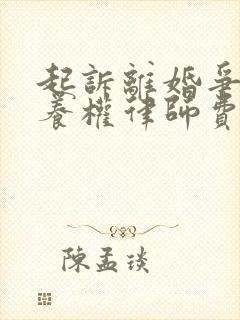 起訴離婚爭
養權律師費
陳孟琰